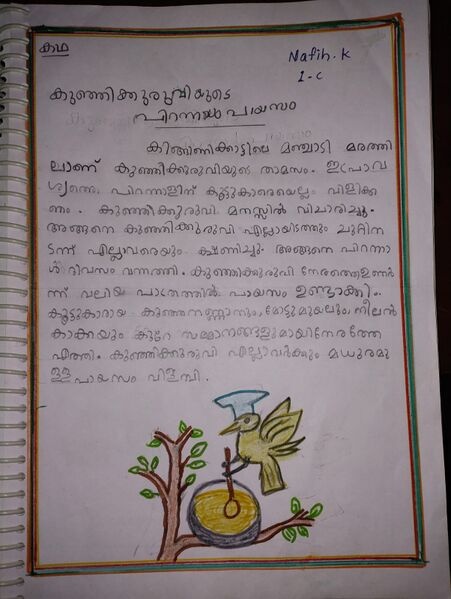 കഥ
Nafih.K
1-C
കുഞ്ഞിക്കുരുവിയുടെ
പിറന്നാൾ പായസം
കിങ്ങിണിക്കാട്ടിലെ മഞ്ചാടി മരത്തി
ലാണ് കുഞ്ഞിക്കുരുവിയുടെ താമസം. ഇപ്രാവ
ശ്യത്തെ പിറന്നാളിന് കൂട്ടുകാരെയെല്ലാം വിളിക്ക
ണം. കുഞ്ഞിക്കുരുവി മനസ്സിൽ വിചാരിച്ചു.
അങ്ങനെ കുഞ്ഞിക്കുരുവി എല്ലായിടത്തും ചുറ്റിന
ടന്ന് എല്ലാവരെയും ക്ഷണിച്ചു. അങ്ങനെ പിറന്നാ
ൾ ദിവസം വന്നെത്തി. കുഞ്ഞിക്കുരുവി നേരത്തെ ഉണർ
ന്ന് വലിയ പാത്രത്തിൽ പായസം ഉണ്ടാക്കി.
കൂട്ടുകാരായ കുഞ്ഞനണ്ണാനും, മോട്ടുമുയലും, നീലൻ
കാക്കയും കുറേ സമ്മാനങ്ങളുമായി നേരത്തേ
എത്തി. കുഞ്ഞിക്കുരുവി എല്ലാവർക്കും മധുരമു
ള്ള പായസം വിളമ്പി.